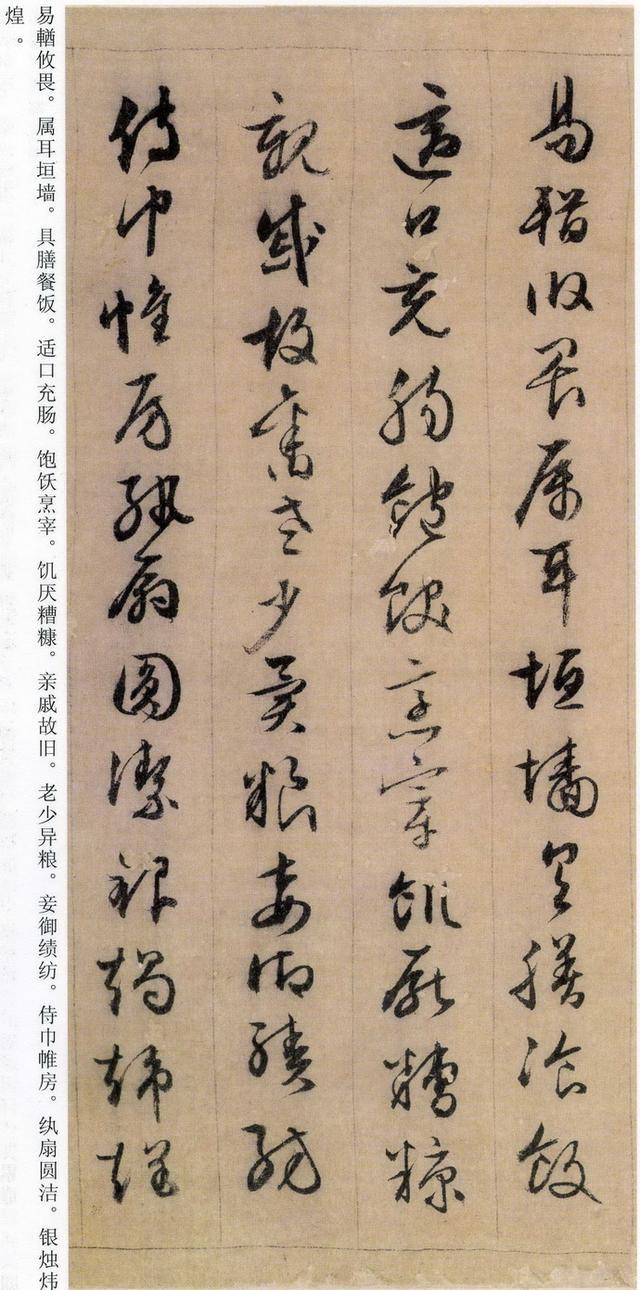 易輶攸畏属耳垣墙具膳飡飯
適口充腸飽飫烹宰飢厭糟糠
親戚故舊老少異粮妾御績紡
侍巾帷房紈扇圓潔銀燭煒煌
易輶攸畏。属耳垣墙。具膳餐饭。适口充肠。饱饫烹宰。饥厌糟糠。亲戚故旧。老少异粮。妾御绩纺。侍巾帷房。纨扇圆洁。银烛炜
煌。